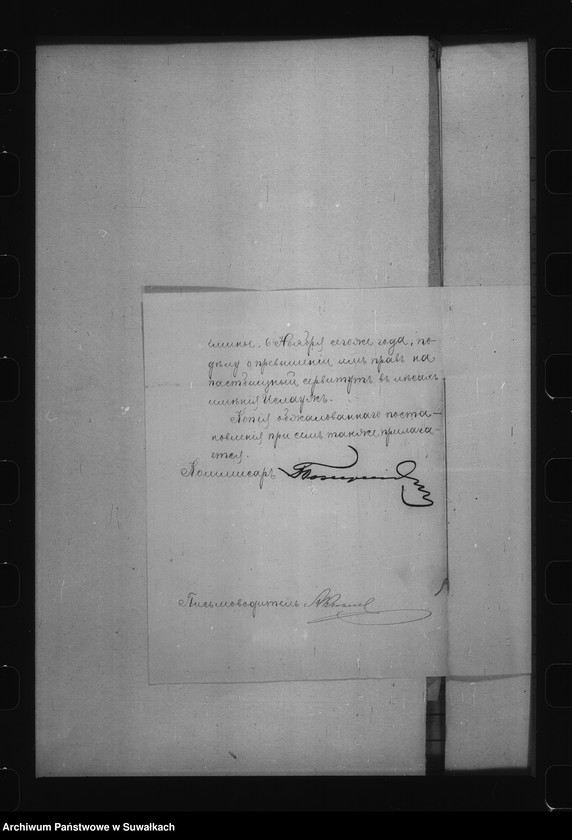 гмины, 6 Ноября сего же года, по
дѣлу о превышеніи имъ правъ на
пастбищный сервитутъ въ лѣсахъ
имѣнія Ислаужъ.
Копія обжалованнаго поста-
новленія при семъ также прилага-
ется.
Коммисаръ
Письмоводитель
Archiwum Państwowe w Suwałkach